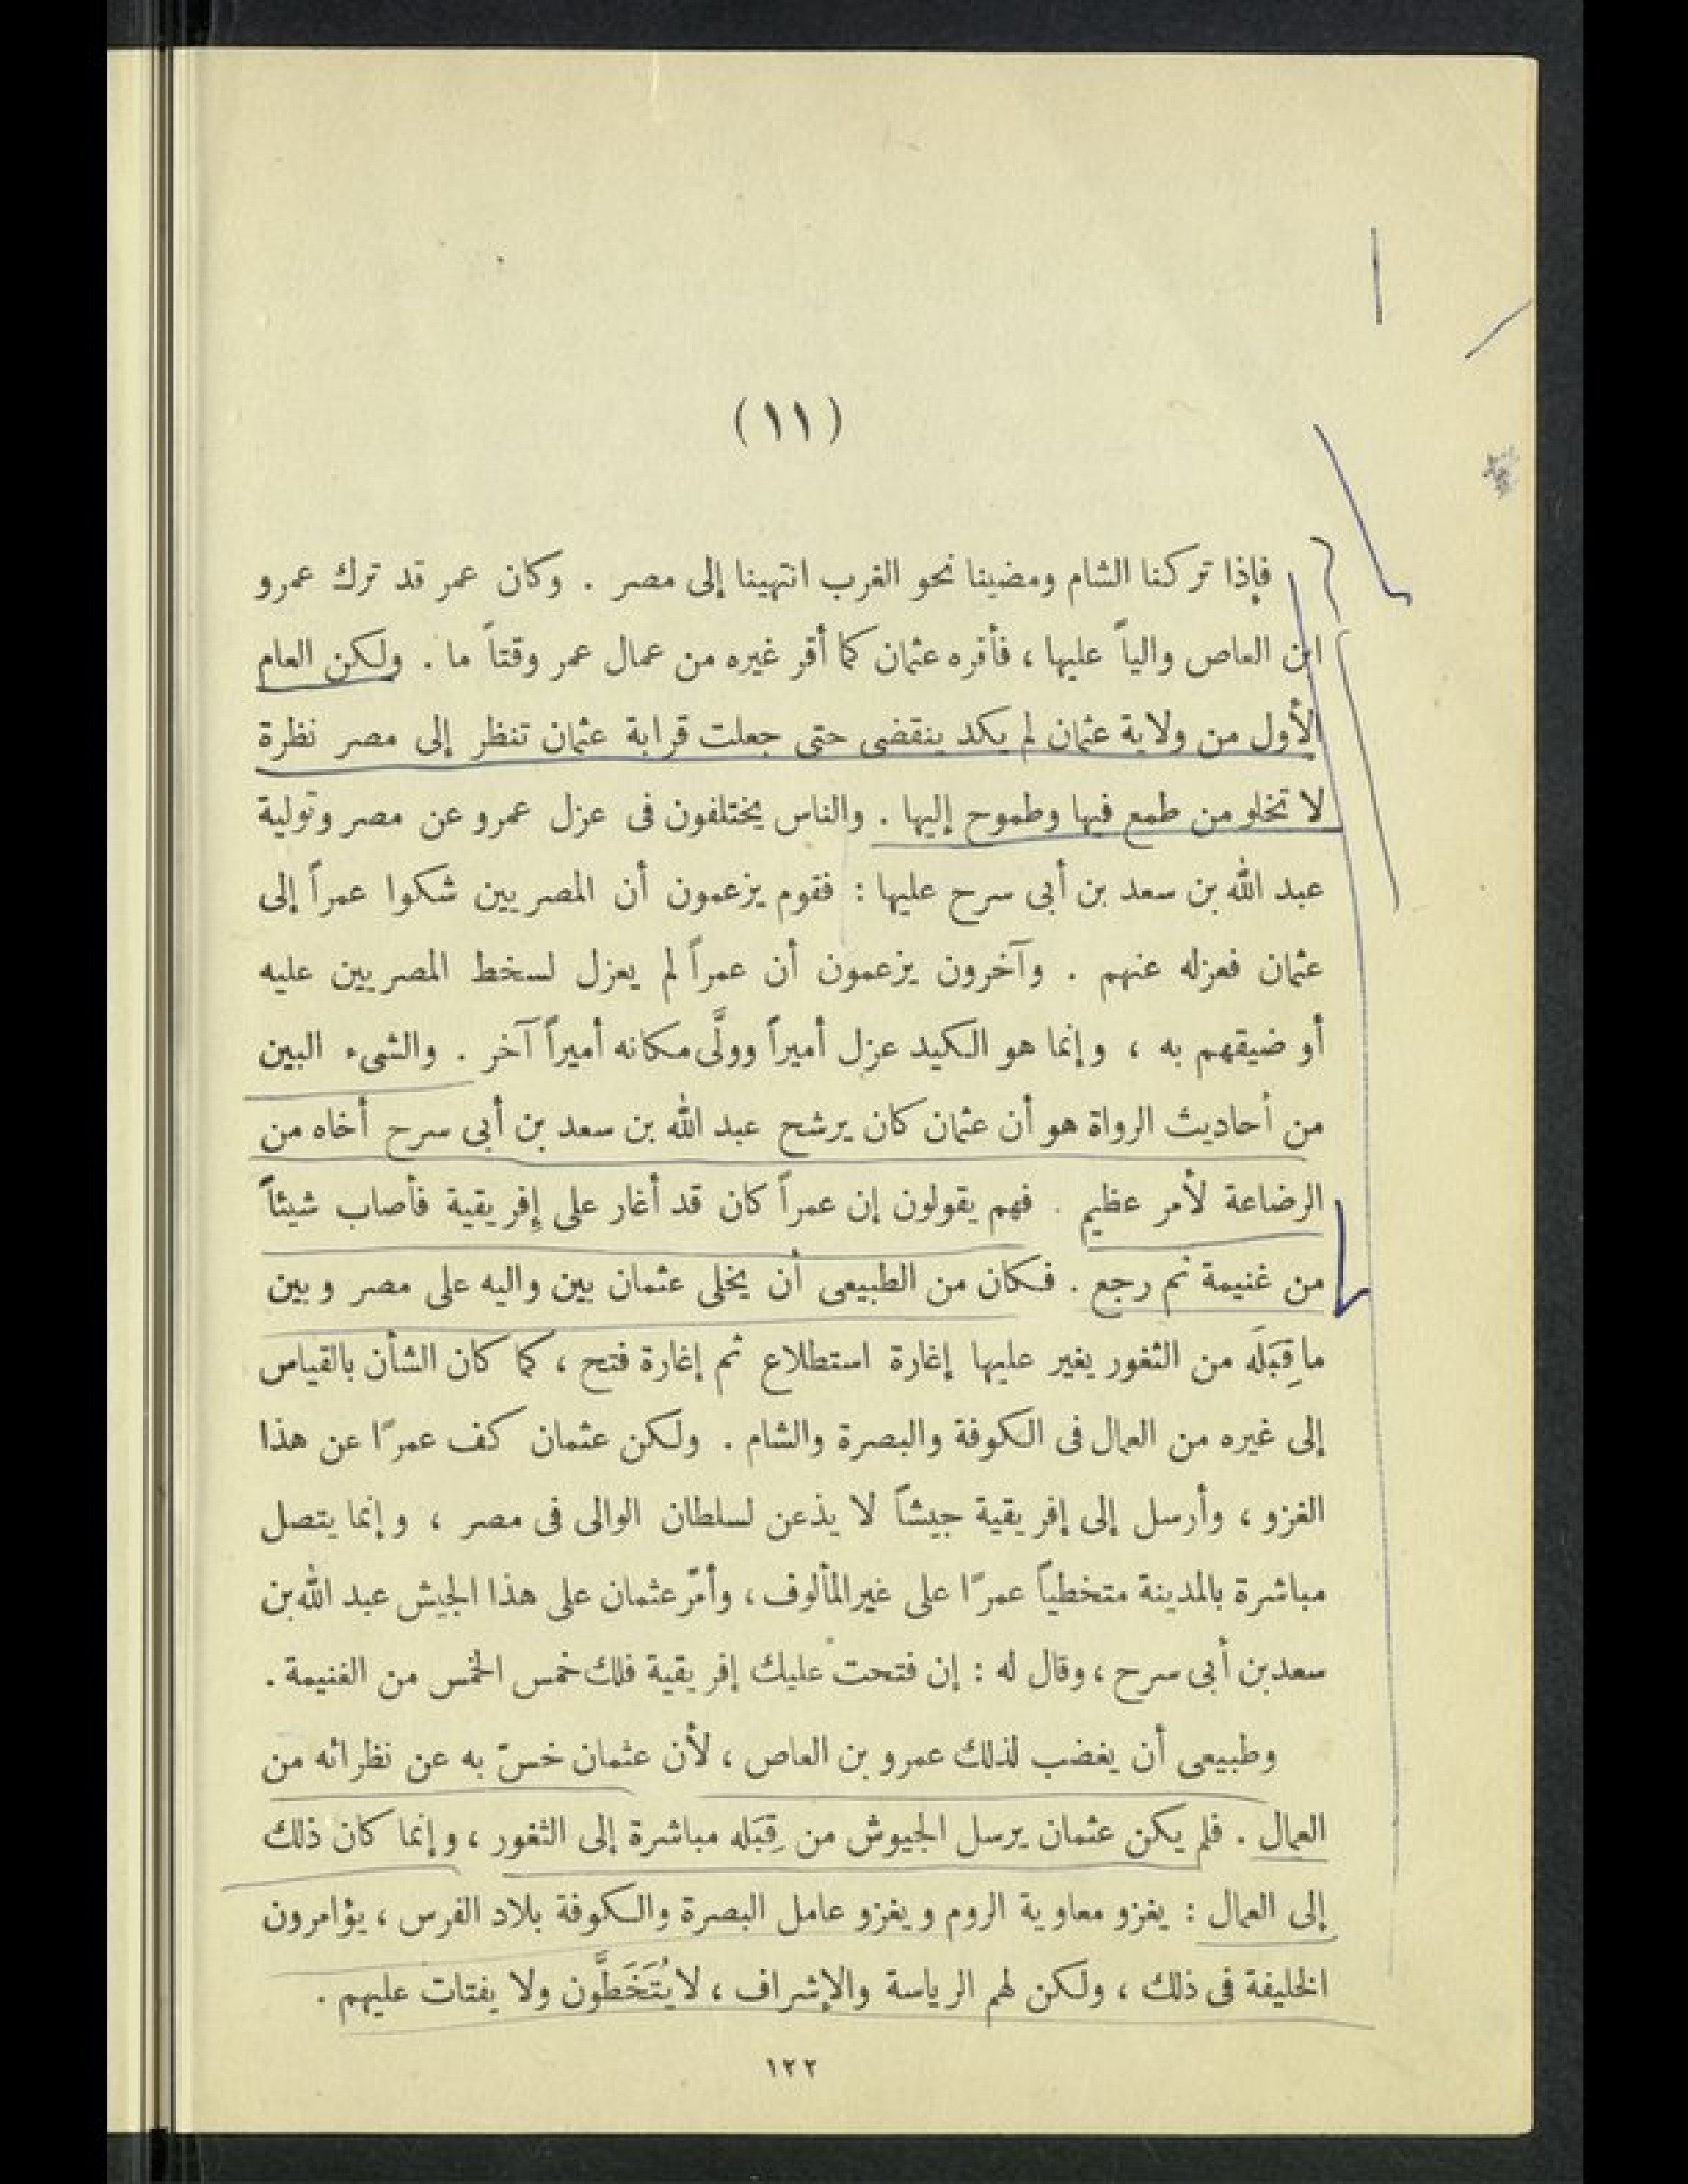 (١١)
فإذا تركنا الشام ومضينا نحو الغرب انتهينا إلى مصر . وكان عمر قد ترك عمرو
ابن العاص والياً عليها ، فأقره عثمان كما أقر غيره من عمال عمر وقتاً ما . ولكن العام
الأول من ولاية عثمان لم يكد ينقضى حتى جعلت قرابة عثمان تنظر إلى مصر نظرة
لا تخلو من طمع فيها وطموح إليها . والناس يختلفون فى عزل عمرو عن مصر وتولية
عبد الله بن سعد بن أبى سرح عليها : فقوم يزعمون أن المصريين شكوا عمراً إلى
عثمان فعزله عنهم . وآخرون يزعمون أن عمراً لم يعزل لسخط المصريين عليه
أو ضيقهم به ، وإنما هو الكيد عزل أميراً وولَّى مكانه أميراً آخر . والشىء البين
من أحاديث الرواة هو أن عثمان كان يرشح عبد الله بن سعد بن أبى سرح أخاه من
الرضاعة لأمر عظيم . فهم يقولون إن عمراً كان قد أغار على إفريقية فأصاب شيئاً
من غنيمة ثم رجع . فكان من الطبيعى أن يخلى عثمان بين واليه على مصر وبين
ما قِبَلَه من الثغور يغير عليها إغارة استطلاع ثم إغارة فتح ، كما كان الشأن بالقياس
إلى غيره من العمال فى الكوفة والبصرة والشام . ولكن عثمان كف عمرًا عن هذا
الغزو ، وأرسل إلى إفريقية جيشاً لا يذعن لسلطان الوالى فى مصر ، وإنما يتصل
مباشرة بالمدينة متخطياً عمرًا على غير المألوف ، وأمّر عثمان على هذا الجيش عبد الله بن
سعد بن أبى سرح ، وقال له : إن فتحت عليك إفريقية فلك خمس الخمس من الغنيمة .
وطبيعى أن يغضب لذلك عمرو بن العاص ، لأن عثمان خسّ به عن نظرائه من
العمال . فلم يكن عثمان يرسل الجيوش من قِبَله مباشرة إلى الثغور ، وإنما كان ذلك
إلى العمال : يغزو معاوية الروم ويغزو عامل البصرة والكوفة بلاد الفرس ، يؤامرون
الخليفة فى ذلك ، ولكن لهم الرياسة والإشراف ، لا يُتَخَطَّون ولا يفتات عليهم .
١٢٢